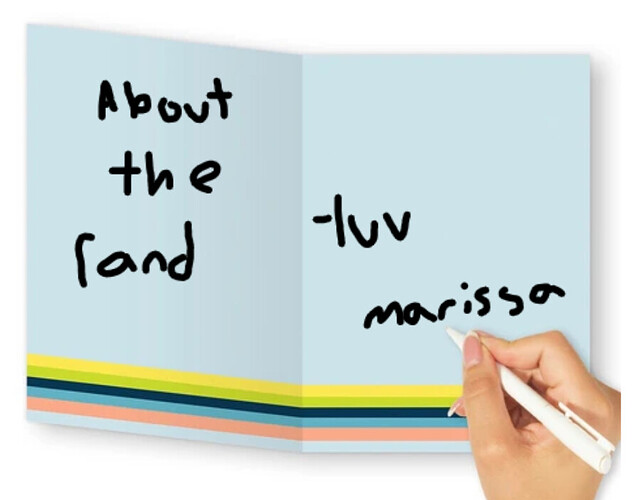 About
the
rand
-luv
marissa